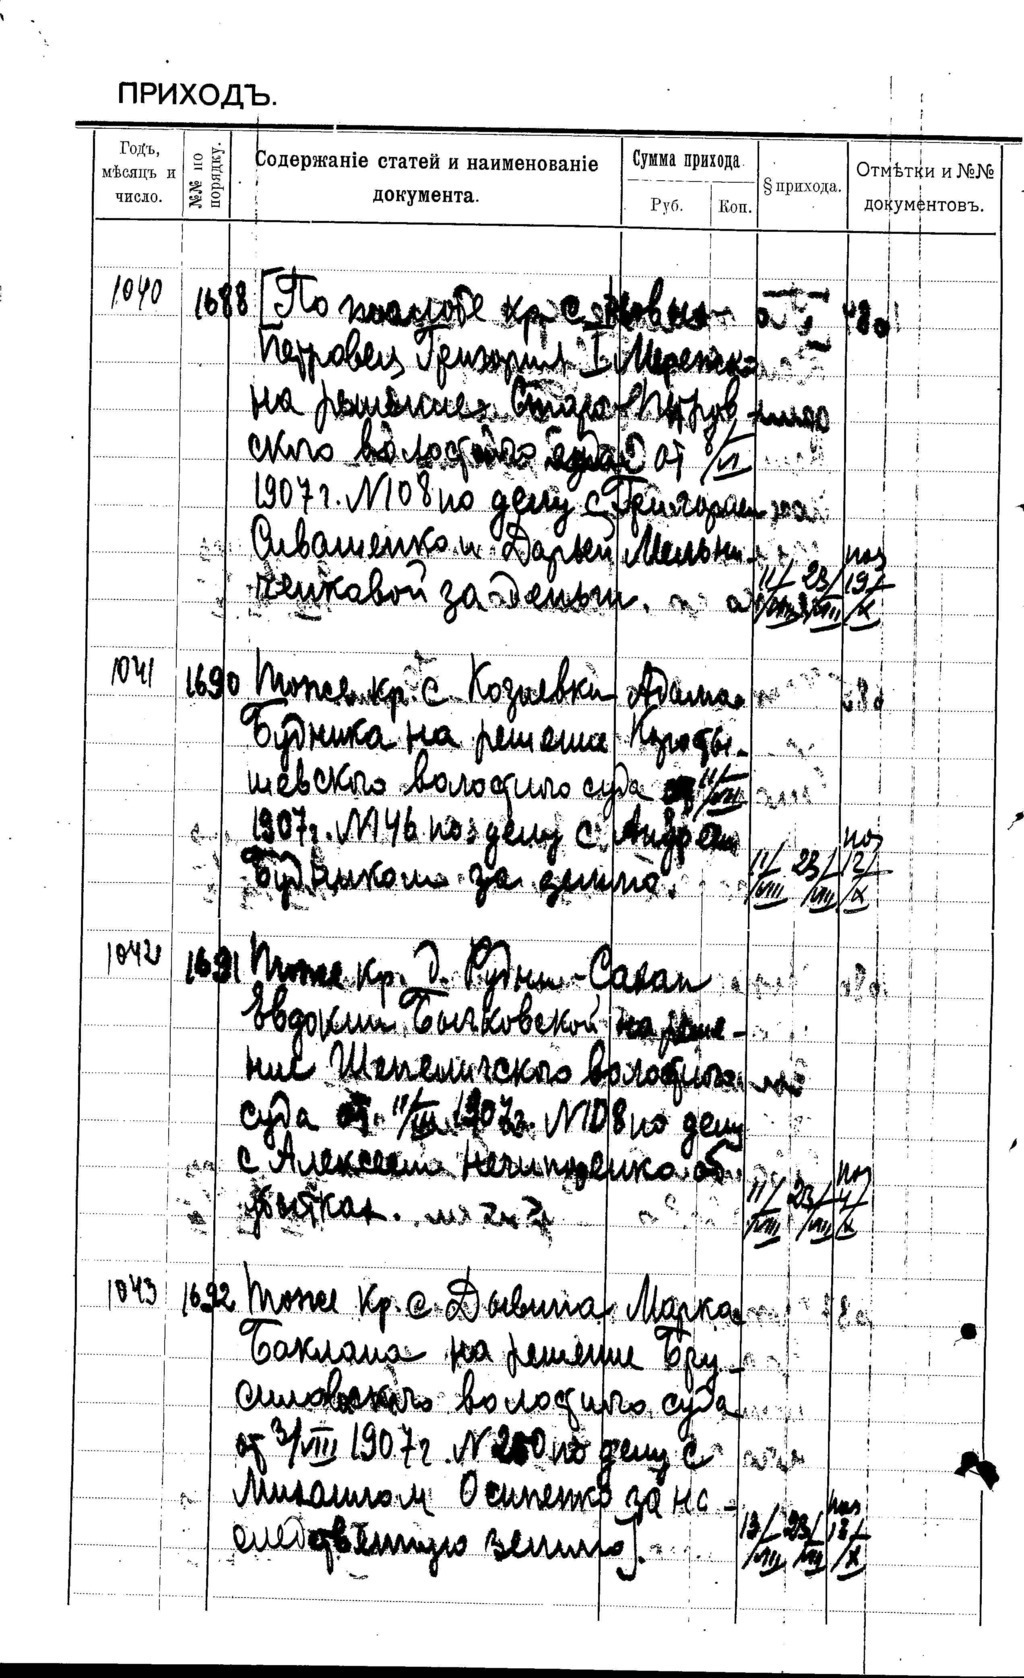 ПРИХОДЪ.
Годъ, мѣсяцъ и число.
№№ по порядку.
Содержаніе статей и наименованіе документа.
Сумма прихода.
Руб.
Коп.
§ прихода.
Отмѣтки и №№ документовъ.
1040 1688 [По жалобе кр. с. Новых
Петровец Григория I. Мережк
на решение Старо-Петров
ского волостного суда от 8/VI
1907 г. N108 по делу с Григорием
Ивашенко и Дарьей Мельни-
ченковой за деньги. 11/VIII 23/VIII 19/X
1041 1690 Тоже кр. с. Козиевки Адама
Будника на решение Коросты-
шевского волостного суда от 11/VII
1907 г. N146 по делу с Андреем
Будником за землю. 11/VIII 23/VIII 12/X
1042 1691 Тоже кр. д. Рудни-
Евдокии Бычковской на реше-
ние Шепеличского волостного
суда от 11/III 1907 г. N108 по делу
с Алексеем Нечипоренко об
убытках. 11/VIII 23/VIII 4/X
1043 1692 Тоже кр. с. Дывина Марка
Баклана на решение Бру-
силовского волостного суда
от 3/VII 1907 г. N 250 по делу с
Михаилом Осипенко за на-
следственную землю]. 13/VIII 23/VIII 18/X